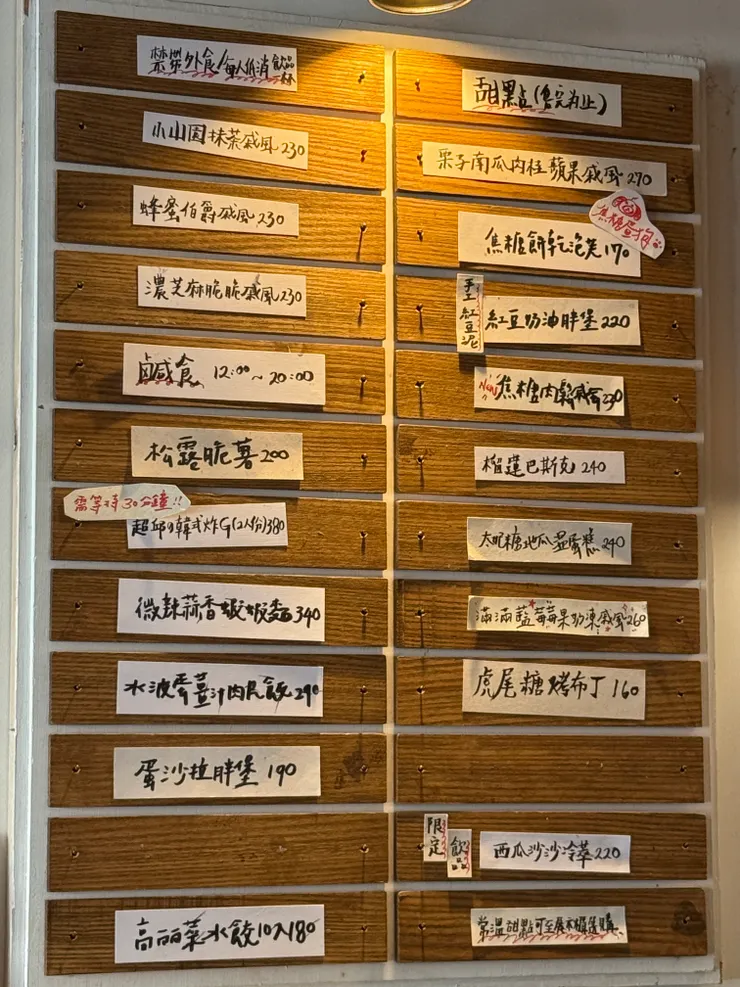 禁帶外食/每人低消飲品
小山園抹茶戚風230
蜂蜜伯爵戚風230
濃芝麻脆脆戚風230
鹹食 12:00~20:00
松露脆薯200
需等待30分鐘!!
韓式炸G(2人份)380
微辣蒜香蝦蝦麵340
水波蛋薑汁肉飯290
蛋沙拉胖堡 190
高麗菜水餃10入180
甜點(售完為止)
栗子南瓜肉桂蘋果戚風270
焦糖蛋狗
焦糖餅乾泡芙170
手工紅豆泥
紅豆奶油胖堡220
New焦糖肉鬆戚風230
榴蓮巴斯克 240
大妃糖地瓜蛋糕240
滿滿藍莓果奶凍戚風260
虎尾糖烤布丁160
限定
飲品
西瓜沙沙冷萃220
常溫甜點可至